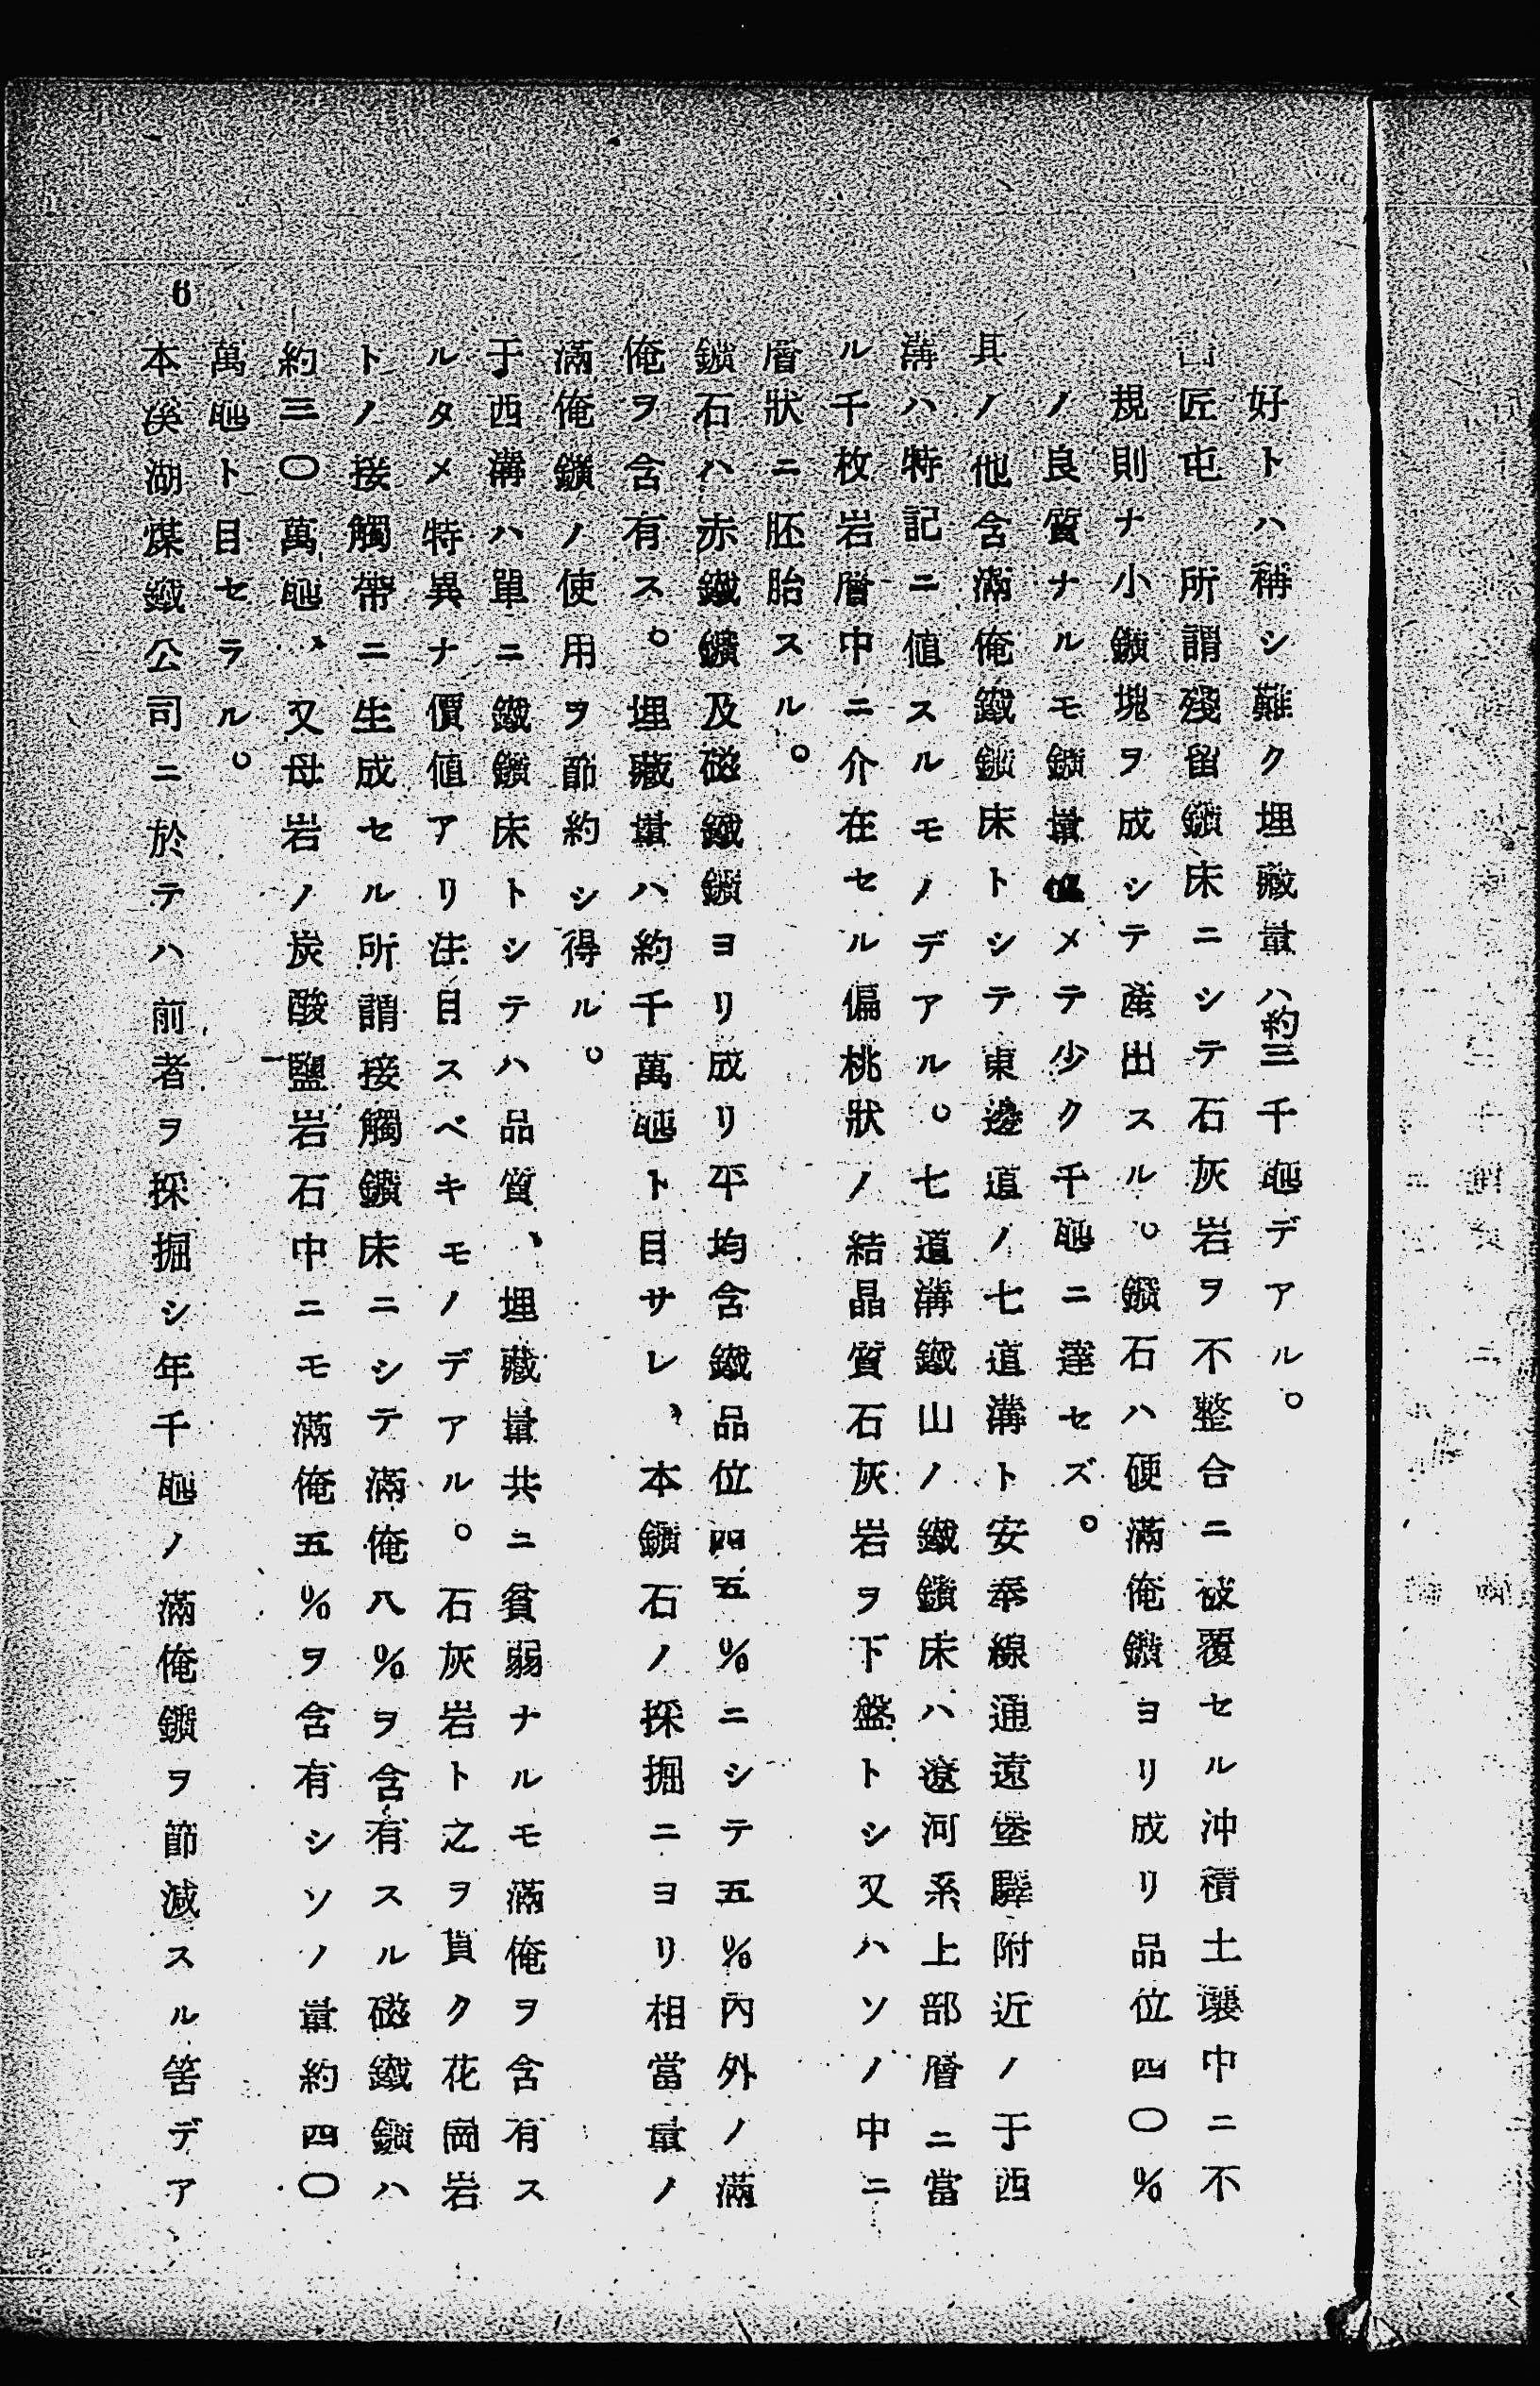 好トハ稱シ難ク埋藏量ハ約三千瓲デアル。
山匠屯　所謂殘留鑛床ニシテ石灰岩ヲ不整合ニ被覆セル沖積土壤中ニ不
規則ナ小鑛塊ヲ成シテ產出スル。鑛石ハ硬滿俺鑛ヨリ成リ品位四〇％
ノ良質ナルモ鑛量極メテ少ク千瓲ニ達セズ。
其ノ他含滿俺鐵鑛床トシテ東邊道ノ七道溝ト安奉線通遠堡驛附近ノ于西
溝ハ特記ニ値スルモノデアル。七道溝鐵山ノ鐵鑛床ハ遼河系上部層ニ當
ル千枚岩層中ニ介在セル偏桃狀ノ結晶質石灰岩ヲ下盤トシ又ハソノ中ニ
層狀ニ胚胎スル。
鑛石ハ赤鐵鑛及磁鐵鑛ヨリ成リ平均含鐵品位四五％ニシテ五％內外ノ滿
俺ヲ含有ス。埋藏量ハ約千萬瓲ト目サレ、本鑛石ノ採掘ニヨリ相當量ノ
滿俺鑛ノ使用ヲ節約シ得ル。
于西溝ハ單ニ鐵鑛床トシテハ品質、埋藏量共ニ貧弱ナルモ滿俺ヲ含有ス
ルタメ特異ナ價値アリ注目スベキモノデアル。石灰岩ト之ヲ貫ク花崗岩
トノ接觸帶ニ生成セル所謂接觸鑛床ニシテ滿俺八％ヲ含有スル磁鐵鑛ハ
約三〇萬瓲、又母岩ノ炭酸鹽岩石中ニモ滿俺五％ヲ含有シソノ量約四〇
萬瓲ト目セラル。
本溪湖煤鐵公司ニ於テハ前者ヲ採掘シ年千瓲ノ滿俺鑛ヲ節減スル筈デア
6